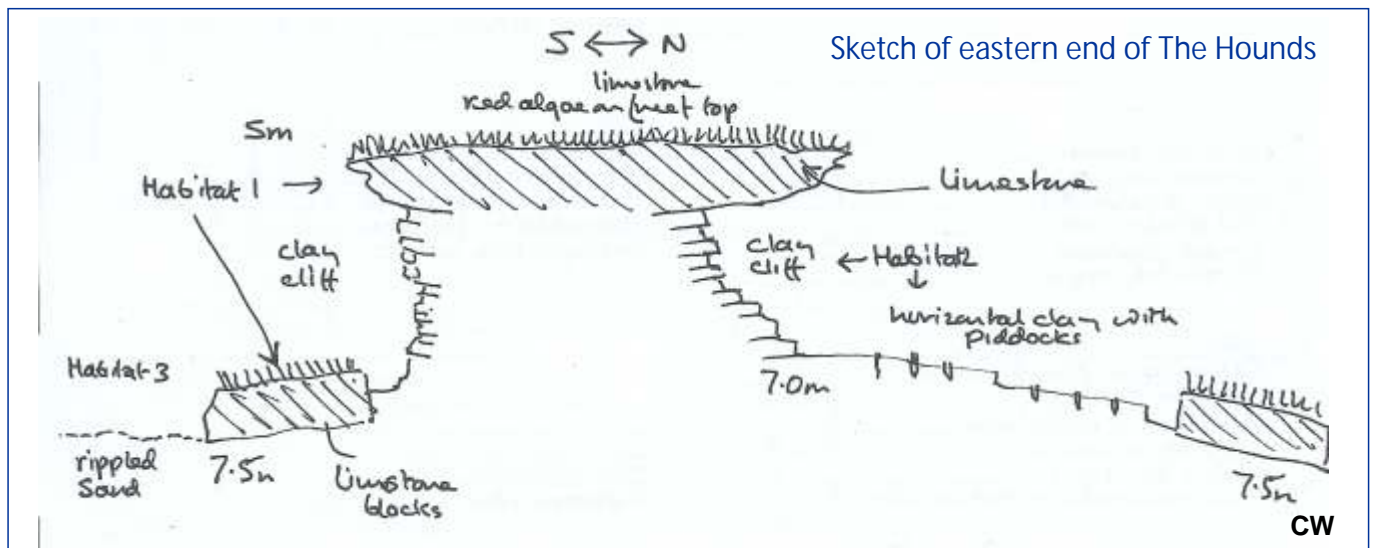 Sketch of eastern end of The Hounds
S ↔ N
limestone
red algae on reef top
5m
Habitat 1 →
Limestone
clay
cliff
clay
cliff
← Habitat 2
horizontal clay with
piddocks
Habitat 3
7.0m
rippled
Sand
7.5m
Limestone
blocks
7.5m
CW